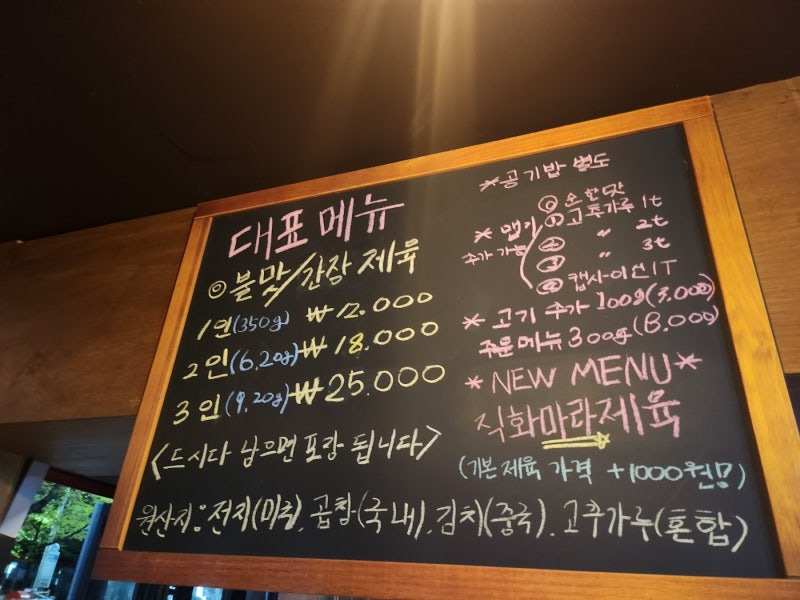 대표메뉴
◎ 불맛/간장 제육
1인(350g) ₩12.000
2인(6.20g) ₩18.000
3인(9.20g) ₩25.000
<드시다 남으면 포장 됩니다>
*공기밥 별도
⓪ 순한맛
* 맵기 ① 고추가루 1t
추가 가능 ② 〃 2t
③ 〃 3t
④ 캡사이신 1T
* 고기 추가 100g(3.000)
주문메뉴 300g(8.000)
* NEW MENU *
직화마라제육
(기본 제육 가격 +1000원)
원산지: 전지(미국), 곱창(국내), 김치(중국), 고추가루(혼합)